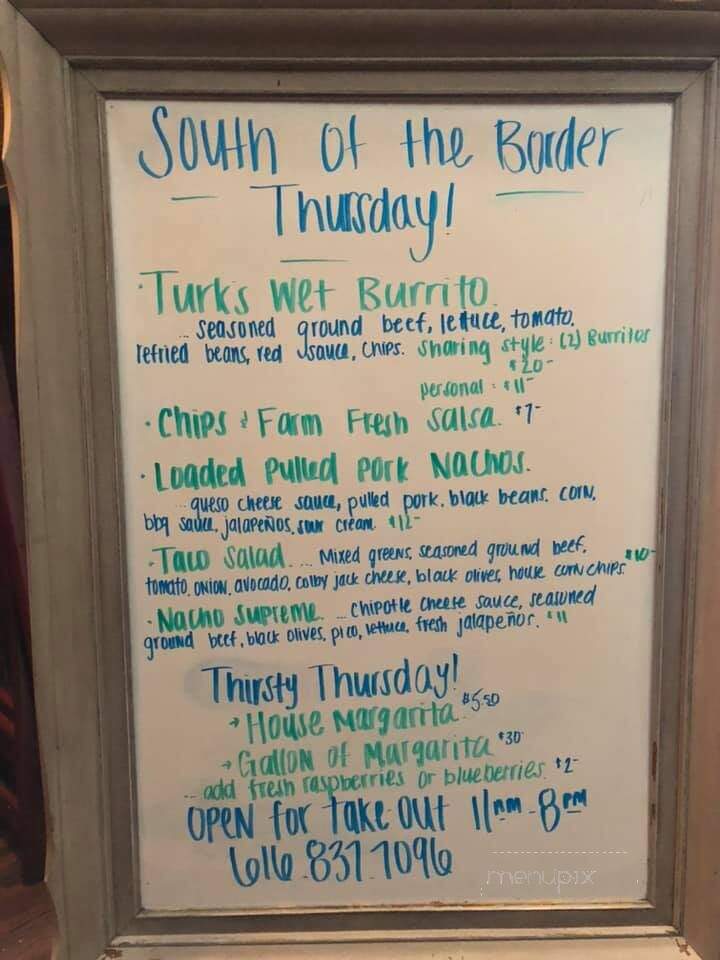 South of the Border
Thursday!
· Turks Wet Burrito.
... seasoned ground beef, lettuce, tomato,
refried beans, red sauce, chips. Sharing style: (2) Burritos
$20-
personal: $11-
· Chips & Farm Fresh Salsa. $7-
· Loaded Pulled Pork Nachos.
... queso cheese sauce, pulled pork, black beans, corn,
bbq sauce, jalapeños, sour cream. $12-
· Taco Salad.... Mixed greens, seasoned ground beef,
tomato, onion, avocado, colby jack cheese, black olives, house corn chips. $10-
· Nacho Supreme. ...chipotle cheese sauce, seasoned
ground beef, black olives, pico, lettuce, fresh jalapeños. $11
Thirsty Thursday!
→ House Margarita $5.50
→ Gallon of Margarita $30-
... add fresh raspberries or blueberries. $2-
OPEN for take-out 11am-8pm
616.837.7096
menupix